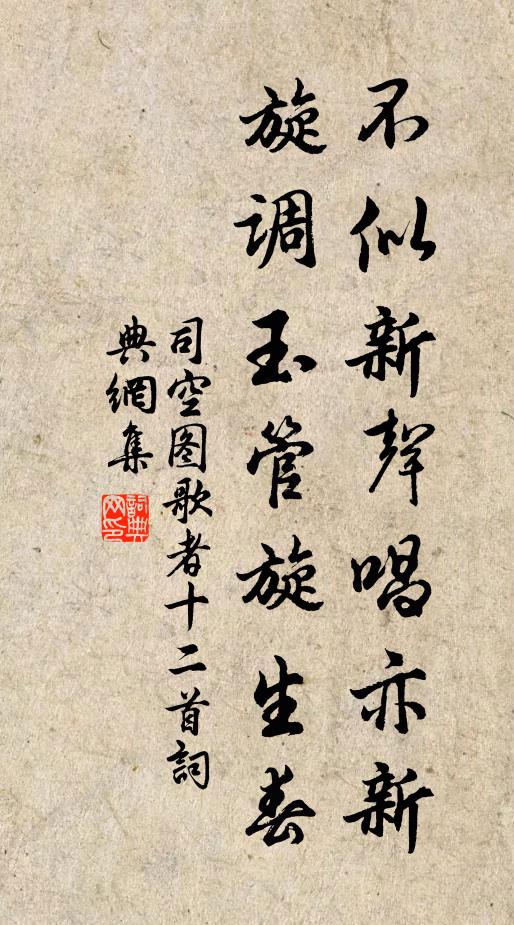 不似新聲唱亦新
旋调玉管旋生春
司空图歌者十二首詞
典網集
詞典網印